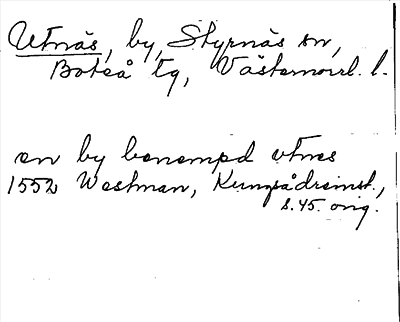 Utnäs, by, Styrnäs sn,
Boteå tg, Västernorrl. l.
en by benempd utnes
1552 Westman, Kungsådreinst.,
s. 45. orig.